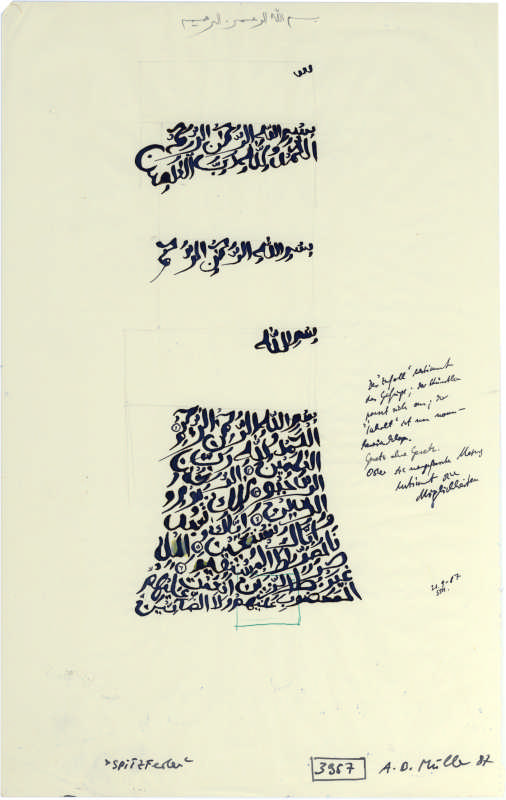 بسم الله الرحمن الرحيم
بسم الله الرحمن الرحيم
الحمد لله رب العلمين
بسم الله الرحمن الرحيم
بسم الله
بسم الله الرحمن الرحيم
الحمد لله رب
العلمين الرحمن
الرحيم ملك يوم
الدين اياك نعبد
واياك نستعين اهد
نا الصراط المستقيم
صراط الذين انعمت عليهم
غير المغضوب عليهم ولا الضالين
Der "Zufall" bestimmt
das Gefüge; der Künstler
passt sich an; der
"Inhalt" ist nur
Gesetz ohne Gesetz.
Oder die
bestimmt die
Möglichkeiten
21.9.87
"Spitzfeder"
3967
A.D. Müller 87